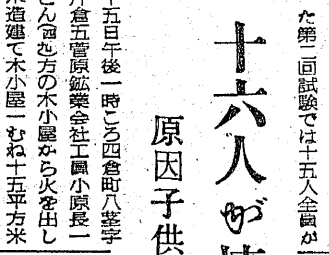 た第二回試験では十五人全員が
十六人が
原因子供
十五日午後一時ころ四倉町八茎字
片倉五菅原鉱業会社工員小原長一
さん方の木小屋から火を出し
木造建て木小屋一むね十五平方米